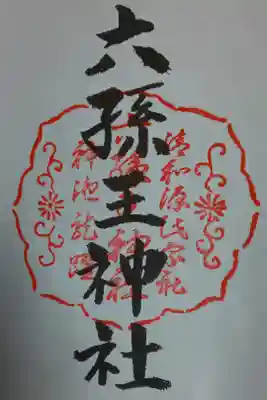 六孫王神社
清和源氏宗社
六孫王神社
神池龍躍